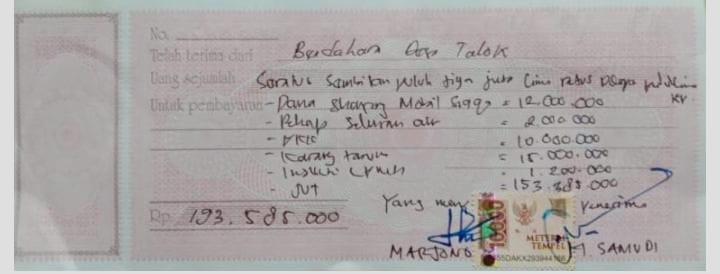 No.
Telah terima dari Bendahara Desa Talok
Uang sejumlah Seratus Sembilan puluh tiga juta lima ratus delapan puluh lima
Untuk pembayaran - Dana Sharing Mobil Siaga = 12.000.000 Rp
- Rehap Saluran air = 2.000.000
- PKK = 10.000.000
- Karang taruna = 15.000.000
- Insentif = 1.200.000
- JUT = 153.385.000
Yang meny Penerima
Rp. 193.585.000
10000
METERAI
TEMPEL
MARJONO SAMUDI